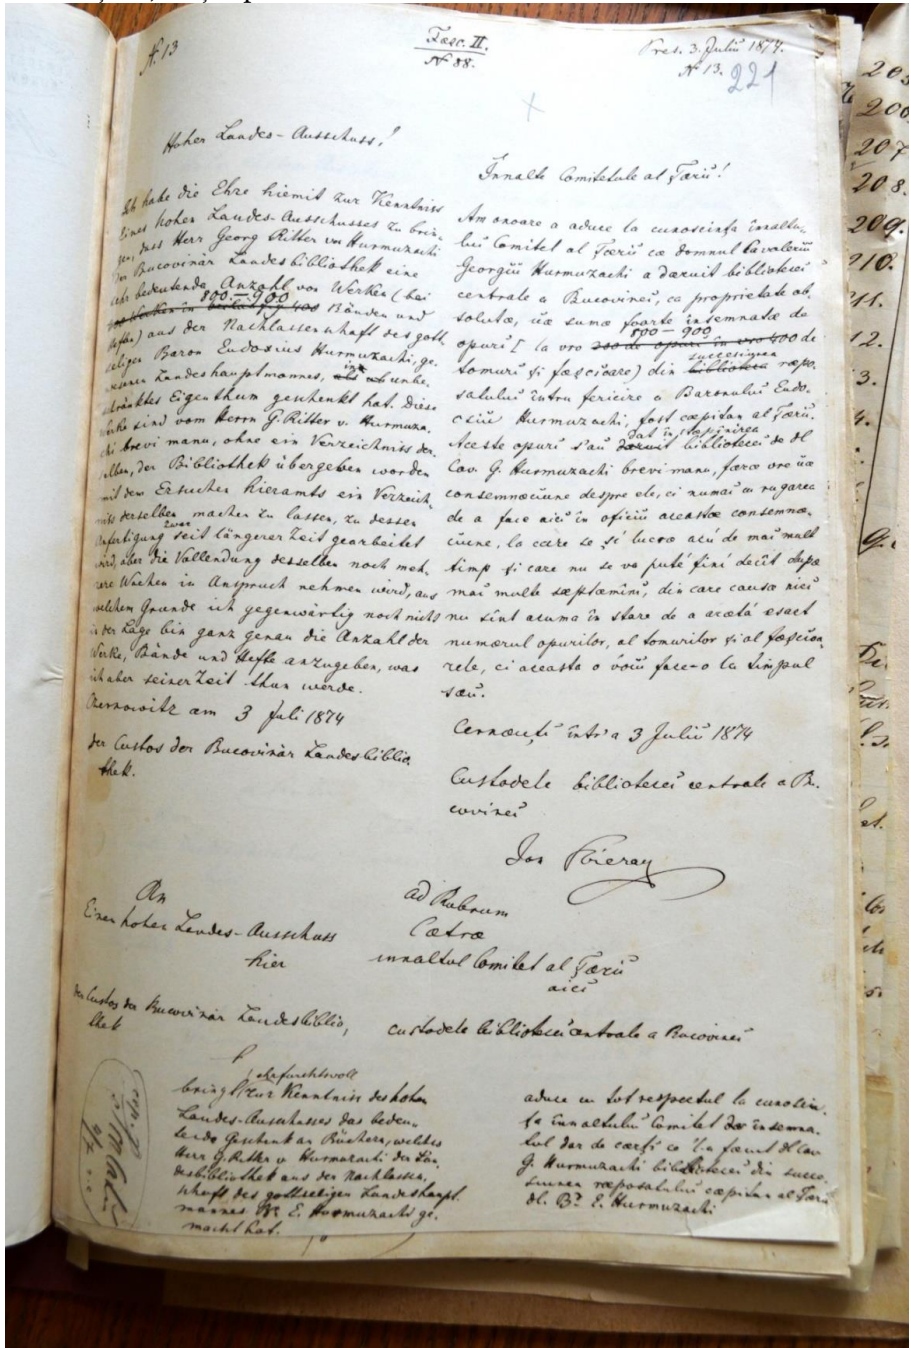 N. 13
Fasc. II.
N 88.
Pres. 3. Juliŭ 1874.
N 13.
221
Hoher Landes-Ausschuss!
Ich habe die Ehre hiemit zur Kenntniss
Eines hohen Landes-Ausschusses zu brin-
gen, dass Herr Georg Ritter von Hurmuzachi
der Bucovinär Landesbibliothek eine
sehr bedeutende Anzahl von Werken (bei
800-900
Bänden und
Heften) aus der Nachlassenschaft des gott-
seligen Baron Eudoxius Hurmuzachi, ge-
wesenen Landeshauptmannes, unbe-
schränktes Eigenthum geschenkt hat. Diese
Werke sind vom Herrn G. Ritter v. Hurmuza-
chi brevi manu, ohne ein Verzeichniss der-
selben, der Bibliothek übergeben worden
mit dem Ersuchen hieramts ein Verzeich-
niss derselben machen zu lassen, zu dessen
Anfertigung zwar seit längerer Zeit gearbeitet
wird, aber die Vollendung desselben noch meh-
rere Wochen in Anspruch nehmen wird, aus
welchem Grunde ich gegenwärtig noch nicht
in der Lage bin ganz genau die Anzahl der
Werke, Bände und Hefte anzugeben, was
ich aber seiner Zeit thun werde.
Czernowitz am 3 Juli 1874
der Custos der Bucovinär Landesbiblio-
thek.
Înnalte Comitetule al Țæriĭ!
Am onoare a aduce la cunoscinţa înnaltu-
luĭ Comitet al Țæriĭ cæ domnul Cavaleriŭ
Georgiŭ Hurmuzachi a daruit biblioteceĭ
centrale a Bucovineĭ, ca proprietate ab-
solutæ, uæ sumæ foarte însemnatæ de
opurĭ [la vro 800-900 de
tomurĭ și fæscioare) din succesiunea ræpo-
satuluĭ întru fericire a Baronuluĭ Eudo-
csiŭ Hurmuzachi, fost cæpitan al Țæriĭ.
Aceste opurĭ s'aŭ dat în stæpînirea biblioteceĭ de dl
Cav. G. Hurmuzachi brevi manu, færæ vre uæ
consemnæciune despre ele, ci numaĭ cu rugarea
de a face aicĭ în oficiŭ aceastæ consemnæ-
ciune, la care se șĭ lucræ acú de maĭ mult
timp și care nu se va puté finí decît dupæ
maĭ multe sæptæmînĭ, din care causæ nicĭ
nu sînt acuma în stare de a arætá esact
numærul opurilor, al tomurilor și al fæscioa-
rele, ci aceasta o voiŭ face-o la timpul
sæŭ.
Cernæuțĭ într'a 3 Juliŭ 1874
Custodele biblioteceĭ centrale a Bu-
covineĭ
An
Einen hohen Landes-Ausschuss
hier
ad Rubrum
Cætræ
innaltul Comitet al Țæriĭ
aicĭ
der Custos der Bucovinär Landesbiblio-
thek
custodele biblioteceĭ centrale a Bucovineĭ
ehrfurchtsvoll
bringt zur Kenntniss des hohen
Landes-Ausschusses das bedeu-
tende Geschenk an Büchern, welches
Herr G. Ritter v Hurmuzachi der Lan-
desbibliothek aus der Nachlassen-
schaft des gottseligen Landeshaupt-
mannes E. Hurmuzachi ge-
macht hat.
aduce cu tot respectul la cunoscin-
ța înnaltuluĭ Comitet însemna-
tul dar de cærțĭ ce 'l-a fæcut dl Cav
G. Hurmuzachi biblioteceĭ din succe-
siunea ræposatuluĭ cæpitan al Țæriĭ
dl. Br. E. Hurmuzachi